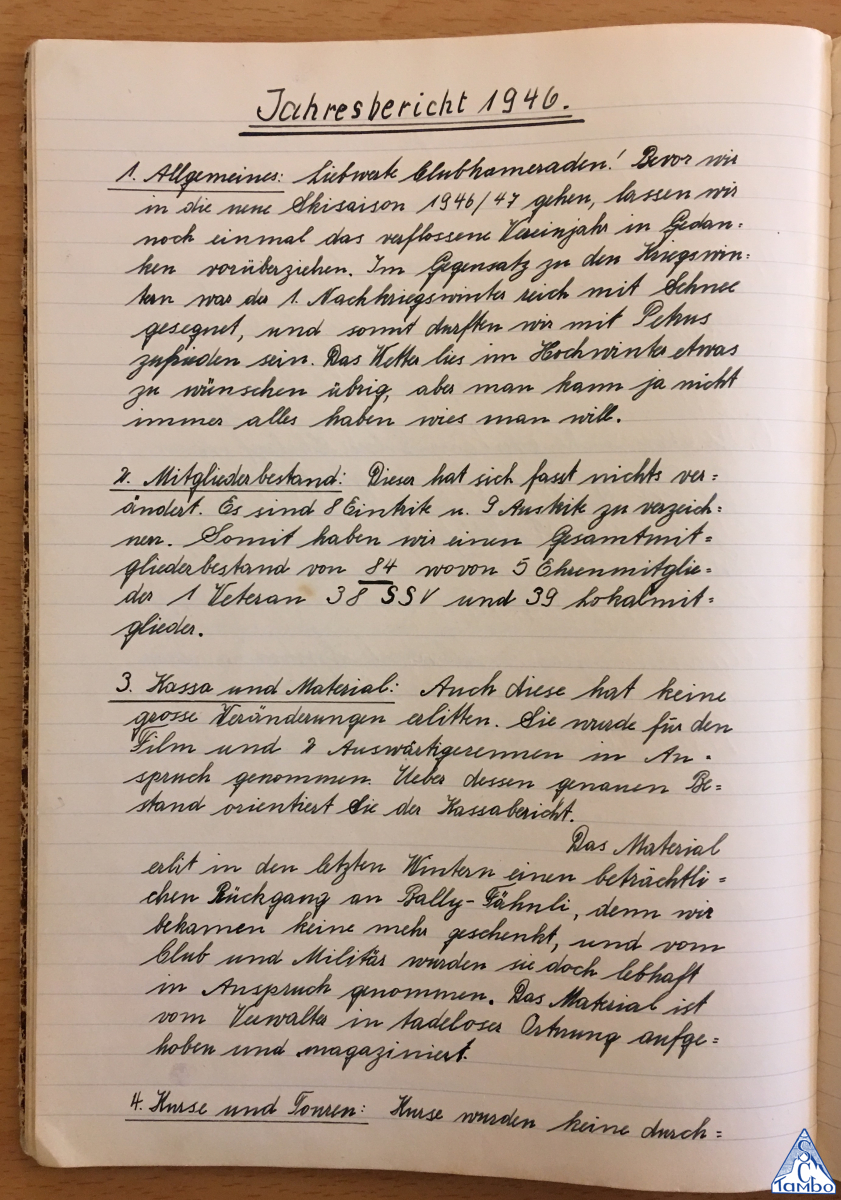 Jahresbericht 1946.
1. Allgemeines: Liebwerte Clubkameraden! Bevor wir
in die neue Skisaison 1946/47 gehen, lassen wir
noch einmal das verflossene Vereinjahr in Gedan=
ken vorüberziehen. Im Gegensatz zu den Kriegswin=
tern war der 1. Nachkriegswinter reich mit Schnee
gesegnet, und somit durften wir mit Petrus
zufrieden sein. Das Wetter lies im Hochwinter etwas
zu wünschen übrig, aber man kann ja nicht
immer alles haben wies man will.
2. Mitgliederbestand: Dieser hat sich fasst nichts ver=
ändert. Es sind 8 Eintritte u. 9 Austritte zu verzeich=
nen. Somit haben wir einen Gesamtmit=
gliederbestand von 84 wovon 5 Ehrenmitglie=
der 1 Veteran 38 SSV und 39 Lokalmit=
glieder.
3. Kassa und Material: Auch diese hat keine
grosse Veränderungen erlitten. Sie wurde für den
Film und 2 Auswärtigerennen in An=
spruch genommen. Ueber dessen genauen Be=
stand orientiert Sie der Kassabericht.
Das Material
erlit in den letzten Wintern einen beträchtli=
chen Rückgang an Bally-Fähnli, denn wir
bekamen keine mehr geschenkt, und vom
Club und Militär wurden sie doch lebhaft
in Anspruch genommen. Das Material ist
vom Verwalter in tadeloser Ortnung aufge=
hoben und magaziniert.
4. Kurse und Touren: Kurse wurden keine durch=
SC
Tambo